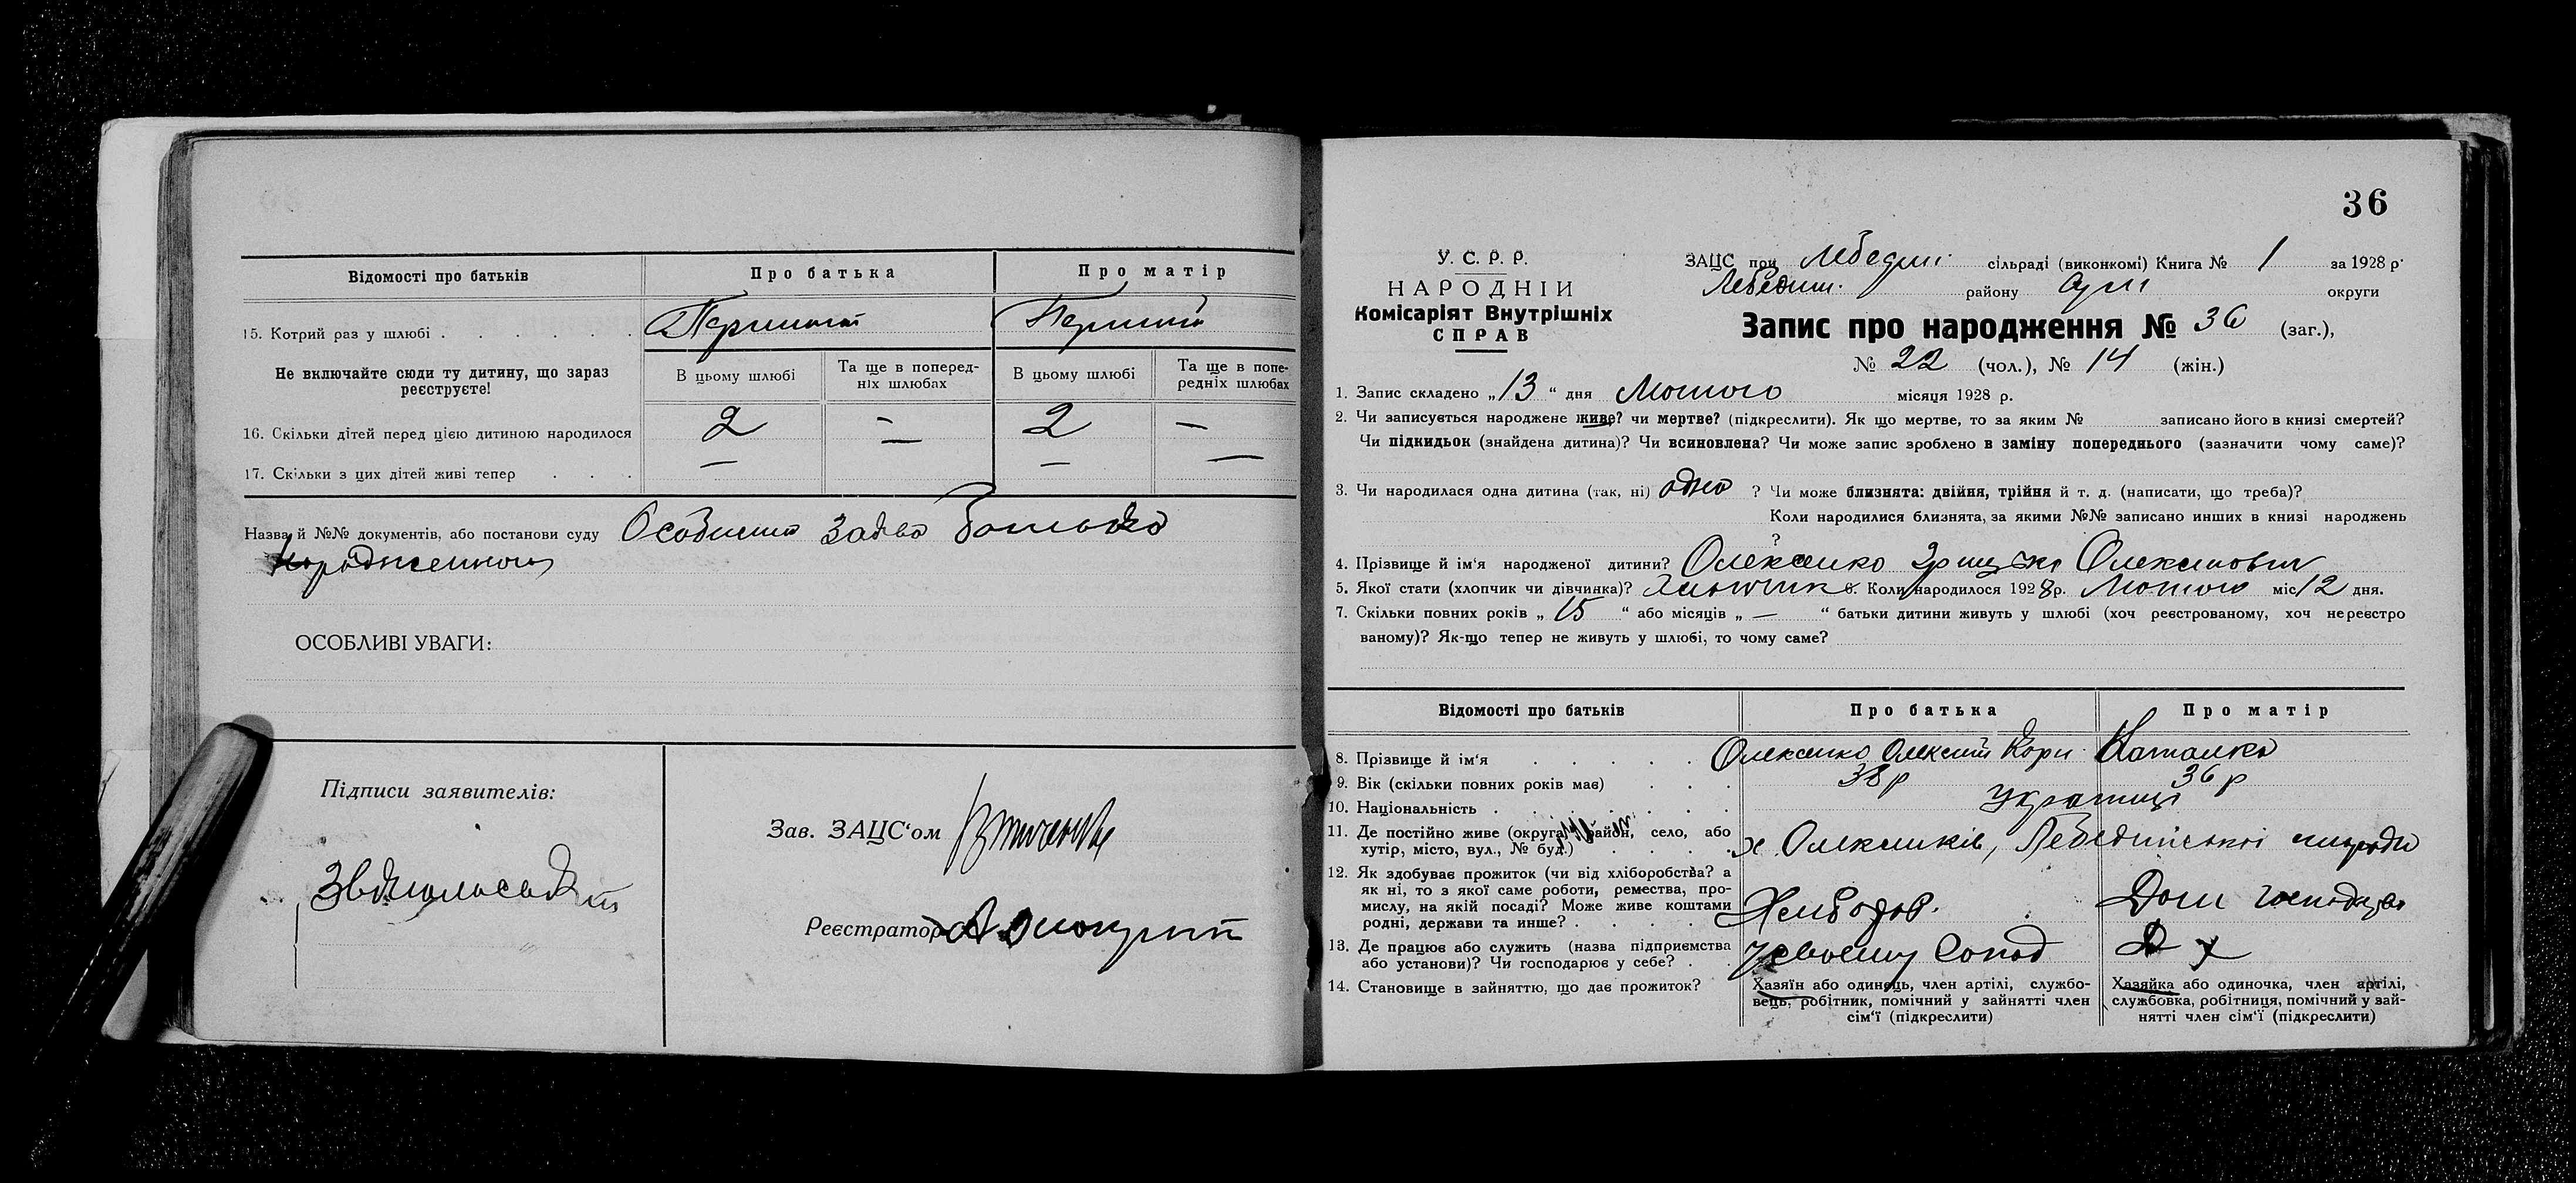 Відомості про батьків Про батька Про матір
15. Котрий раз у шлюбі . . . . . . Перший Перший
Не включайте сюди ту дитину, що зараз реєструєте!
В цьому шлюбі Та ще в поперед-ніх шлюбах В цьому шлюбі Та ще в попе-редніх шлюбах
16. Скільки дітей перед цією дитиною народилося 2 — 2 —
17. Скільки з цих дітей живі тепер . . . — — — —
Назва й №№ документів, або постанови суду Особиста заява батька
народженного
ОСОБЛИВІ УВАГИ:
Підписи заявителів:
Зав. ЗАЦС'ом
Реєстратор
36
У. С. Р. Р.
НАРОДНІЙ
Комісаріят Внутрішніх
СПРАВ
ЗАЦС при Лебедин. сільраді (виконкомі) Книга № 1 за 1928 р.
Лебедин. району Сум округи
Запис про народження № 36 (заг.),
№ 22 (чол.), № 14 (жін.)
1. Запис складено „13“ дня Лютого місяця 1928 р.
2. Чи записується народжене живе? чи мертве? (підкреслити). Як що мертве, то за яким № записано його в книзі смертей?
Чи підкидьок (знайдена дитина)? Чи всиновлена? Чи може запис зроблено в заміну попереднього (зазначити чому саме)?
3. Чи народилася одна дитина (так, ні) одно ? Чи може близнята: двійня, трійня й т. д. (написати, що треба)?
Коли народилися близнята, за якими №№ записано инших в книзі народжень
?
4. Прізвище й ім'я народженої дитини? Олексенко Грицько Олексієвич
5. Якої стати (хлопчик чи дівчинка)? Хлопчик 6. Коли народилося 1928 р. Лютого міс 12 дня.
7. Скільки повних років „15“ або місяців „—“ батьки дитини живуть у шлюбі (хоч реєстрованому, хоч нереєстро
ваному)? Як-що тепер не живуть у шлюбі, то чому саме?
Відомості про батьків Про батька Про матір
8. Прізвище й ім'я . . . . . Олексенко Олексій Корн Наталка
9. Вік (скільки повних років має) . . . 38 р 36 р
10. Національність . . . . . . . Українці
11. Де постійно живе (округа, район, село, або
хутір, місто, вул., № буд.) . . . . х. Олексенків, Лебединської
12. Як здобуває прожиток (чи від хліборобства? а
як ні, то з якої саме роботи, ремества, про-
мислу, на якій посаді? Може живе коштами
родні, держави та инше? . . . . Хлібороб. Дом господарка
13. Де працює або служить (назва підприємства
або установи)? Чи господарює у себе? . . У своєму Д х
14. Становище в зайняттю, що дає прожиток?
Хазяїн або одинець, член артілі, службо-
вець, робітник, помічний у зайнятті член
сім'ї (підкреслити)
Хазяйка або одиночка, член артілі,
службовка, робітниця, помічний у зай-
нятті член сім'ї (підкреслити)